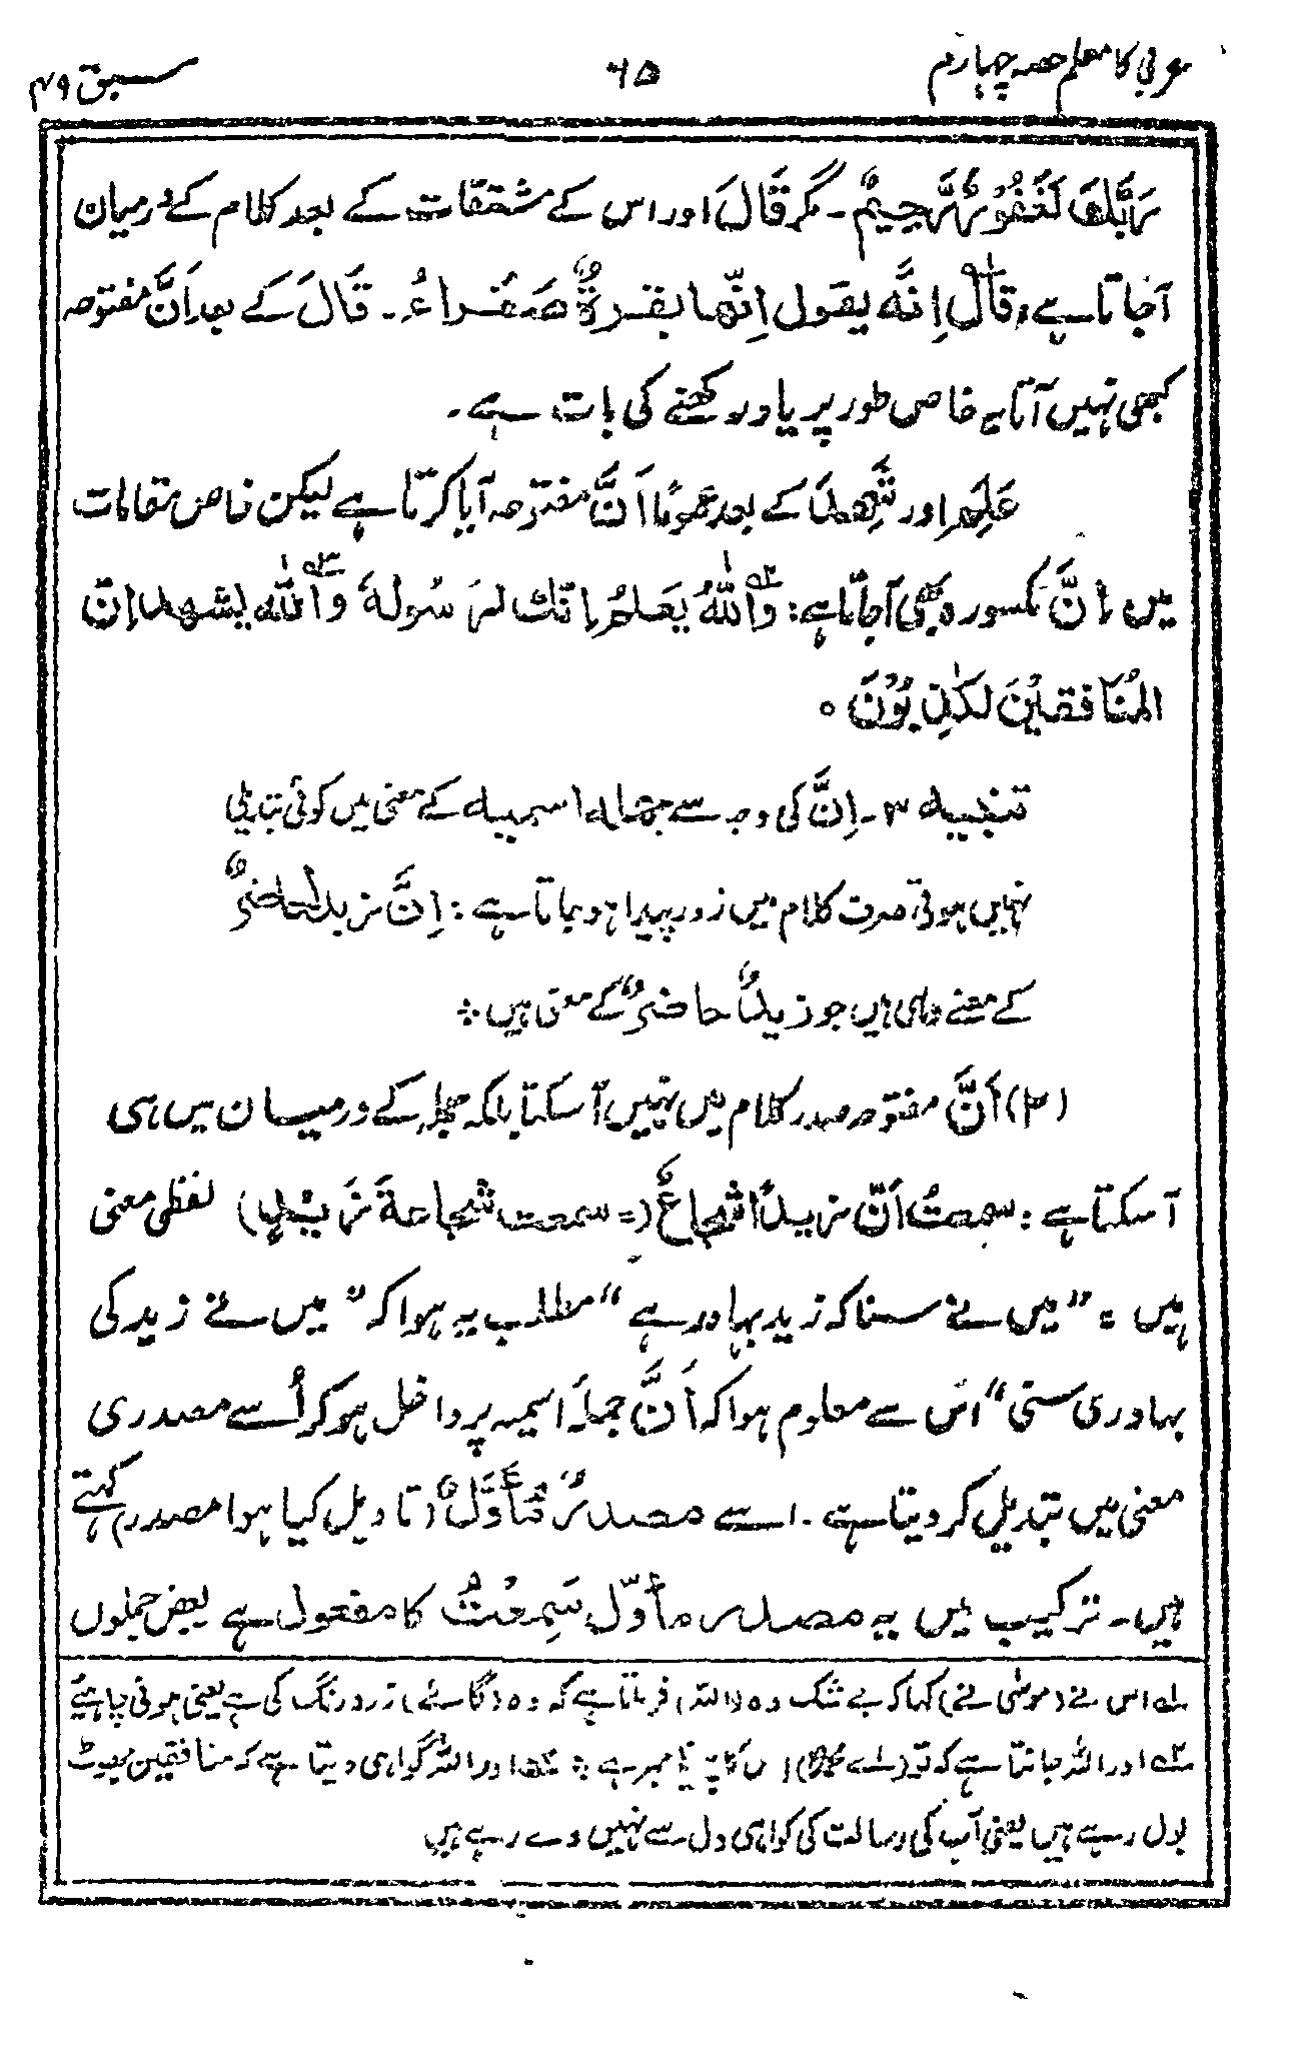 عربی کا معلم حصہ چہارم
۶۵
سبق ۴۹
رَبَّكَ لَغَفُوْرٌ رَّحِيْمٌ ۔ مگر قَالَ اور اس کے مشتقات کے بعد کلام کے درمیان
آجاتا ہے، قَالَ اِنَّهٗ يقول اِنّها بقرةٌ صَفراءُ ۔ قَالَ کے بعد اَنَّ مفتوحہ
کبھی نہیں آتا یہ خاص طور پر یاد رکھنے کی بات ہے ۔
عَلِمَ اور شَهِدَ کے بعد عمومًا اَنَّ مفتوحہ آیا کرتا ہے لیکن خاص مقامات
میں اِنَّ مکسورہ بھی آجاتا ہے : وَاللهُ يَعلمُ اِنّك لَرَسُولُهٗ وَاللهُ يشهد اِنّ
المُنَافقيْنَ لَكٰذِبُوْنَ ۰
تنبیہ ۳ ۔ اِنَّ کی وجہ سے جملہ اسمیہ کے معنی میں کوئی تبدیلی
نہیں ہوتی صرف کلام میں زور پیدا ہوجاتا ہے : اِنَّ زيدًا لحاضرٌ
کے معنے وہی ہیں جو زيدٌ حاضرٌ کے معنی ہیں ÷
(۲) اَنَّ مفتوحہ صدر کلام میں نہیں آسکتا بلکہ جملہ کے درمیان میں ہی
آسکتا ہے : سمعتُ اَنّ زيدًا شجاعٌ (= سمعت شجاعةَ زَيْدٍ) لفظی معنی
ہیں = ”میں نے سنا کہ زید بہادر ہے“ مطلب یہ ہوا کہ ”میں نے زید کی
بہادری سنی“ اس سے معلوم ہوا کہ اَنَّ جملۂ اسمیہ پر داخل ہوکر اُسے مصدری
معنی میں تبدیل کردیتا ہے ۔ اسے مصدرٌ مُأَوَّلٌ (تاویل کیا ہوا مصدر) کہتے
ہیں ۔ ترکیب میں یہ مصدر مأوّل سَمِعْتُ کا مفعول ہے بعض جملوں
۱؎ اس نے (موسیٰ نے) کہا کہ بے شک وہ (اللہ) فرماتا ہے کہ وہ (گائے) زرد رنگ کی ہے یعنی ہونی چاہیے
۲؎ اور اللہ جانتا ہے کہ تو (اے محمدؐ) اس کا پیغامبر ہے ÷ ۳؎ اور اللہ گواہی دیتا ہے کہ منافقین جھوٹ
بول رہے ہیں یعنی آپ کی رسالت کی گواہی دل سے نہیں دے رہے ہیں